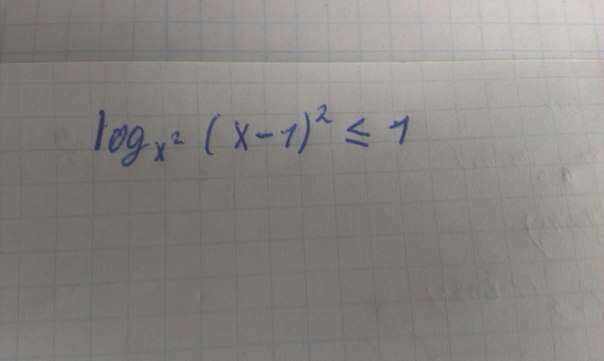 log_{x²} (x-1)² ≤ 1